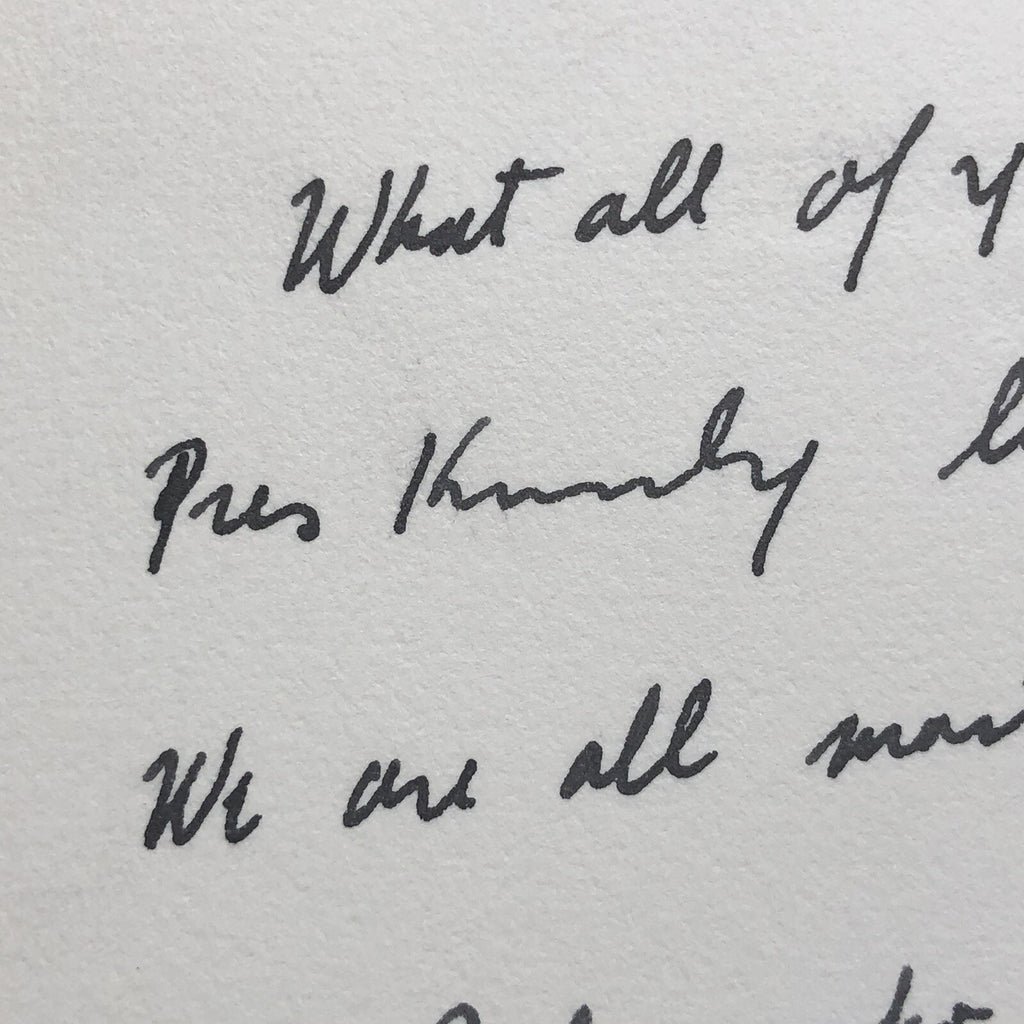 What all of
Pres Kennedy
We are all